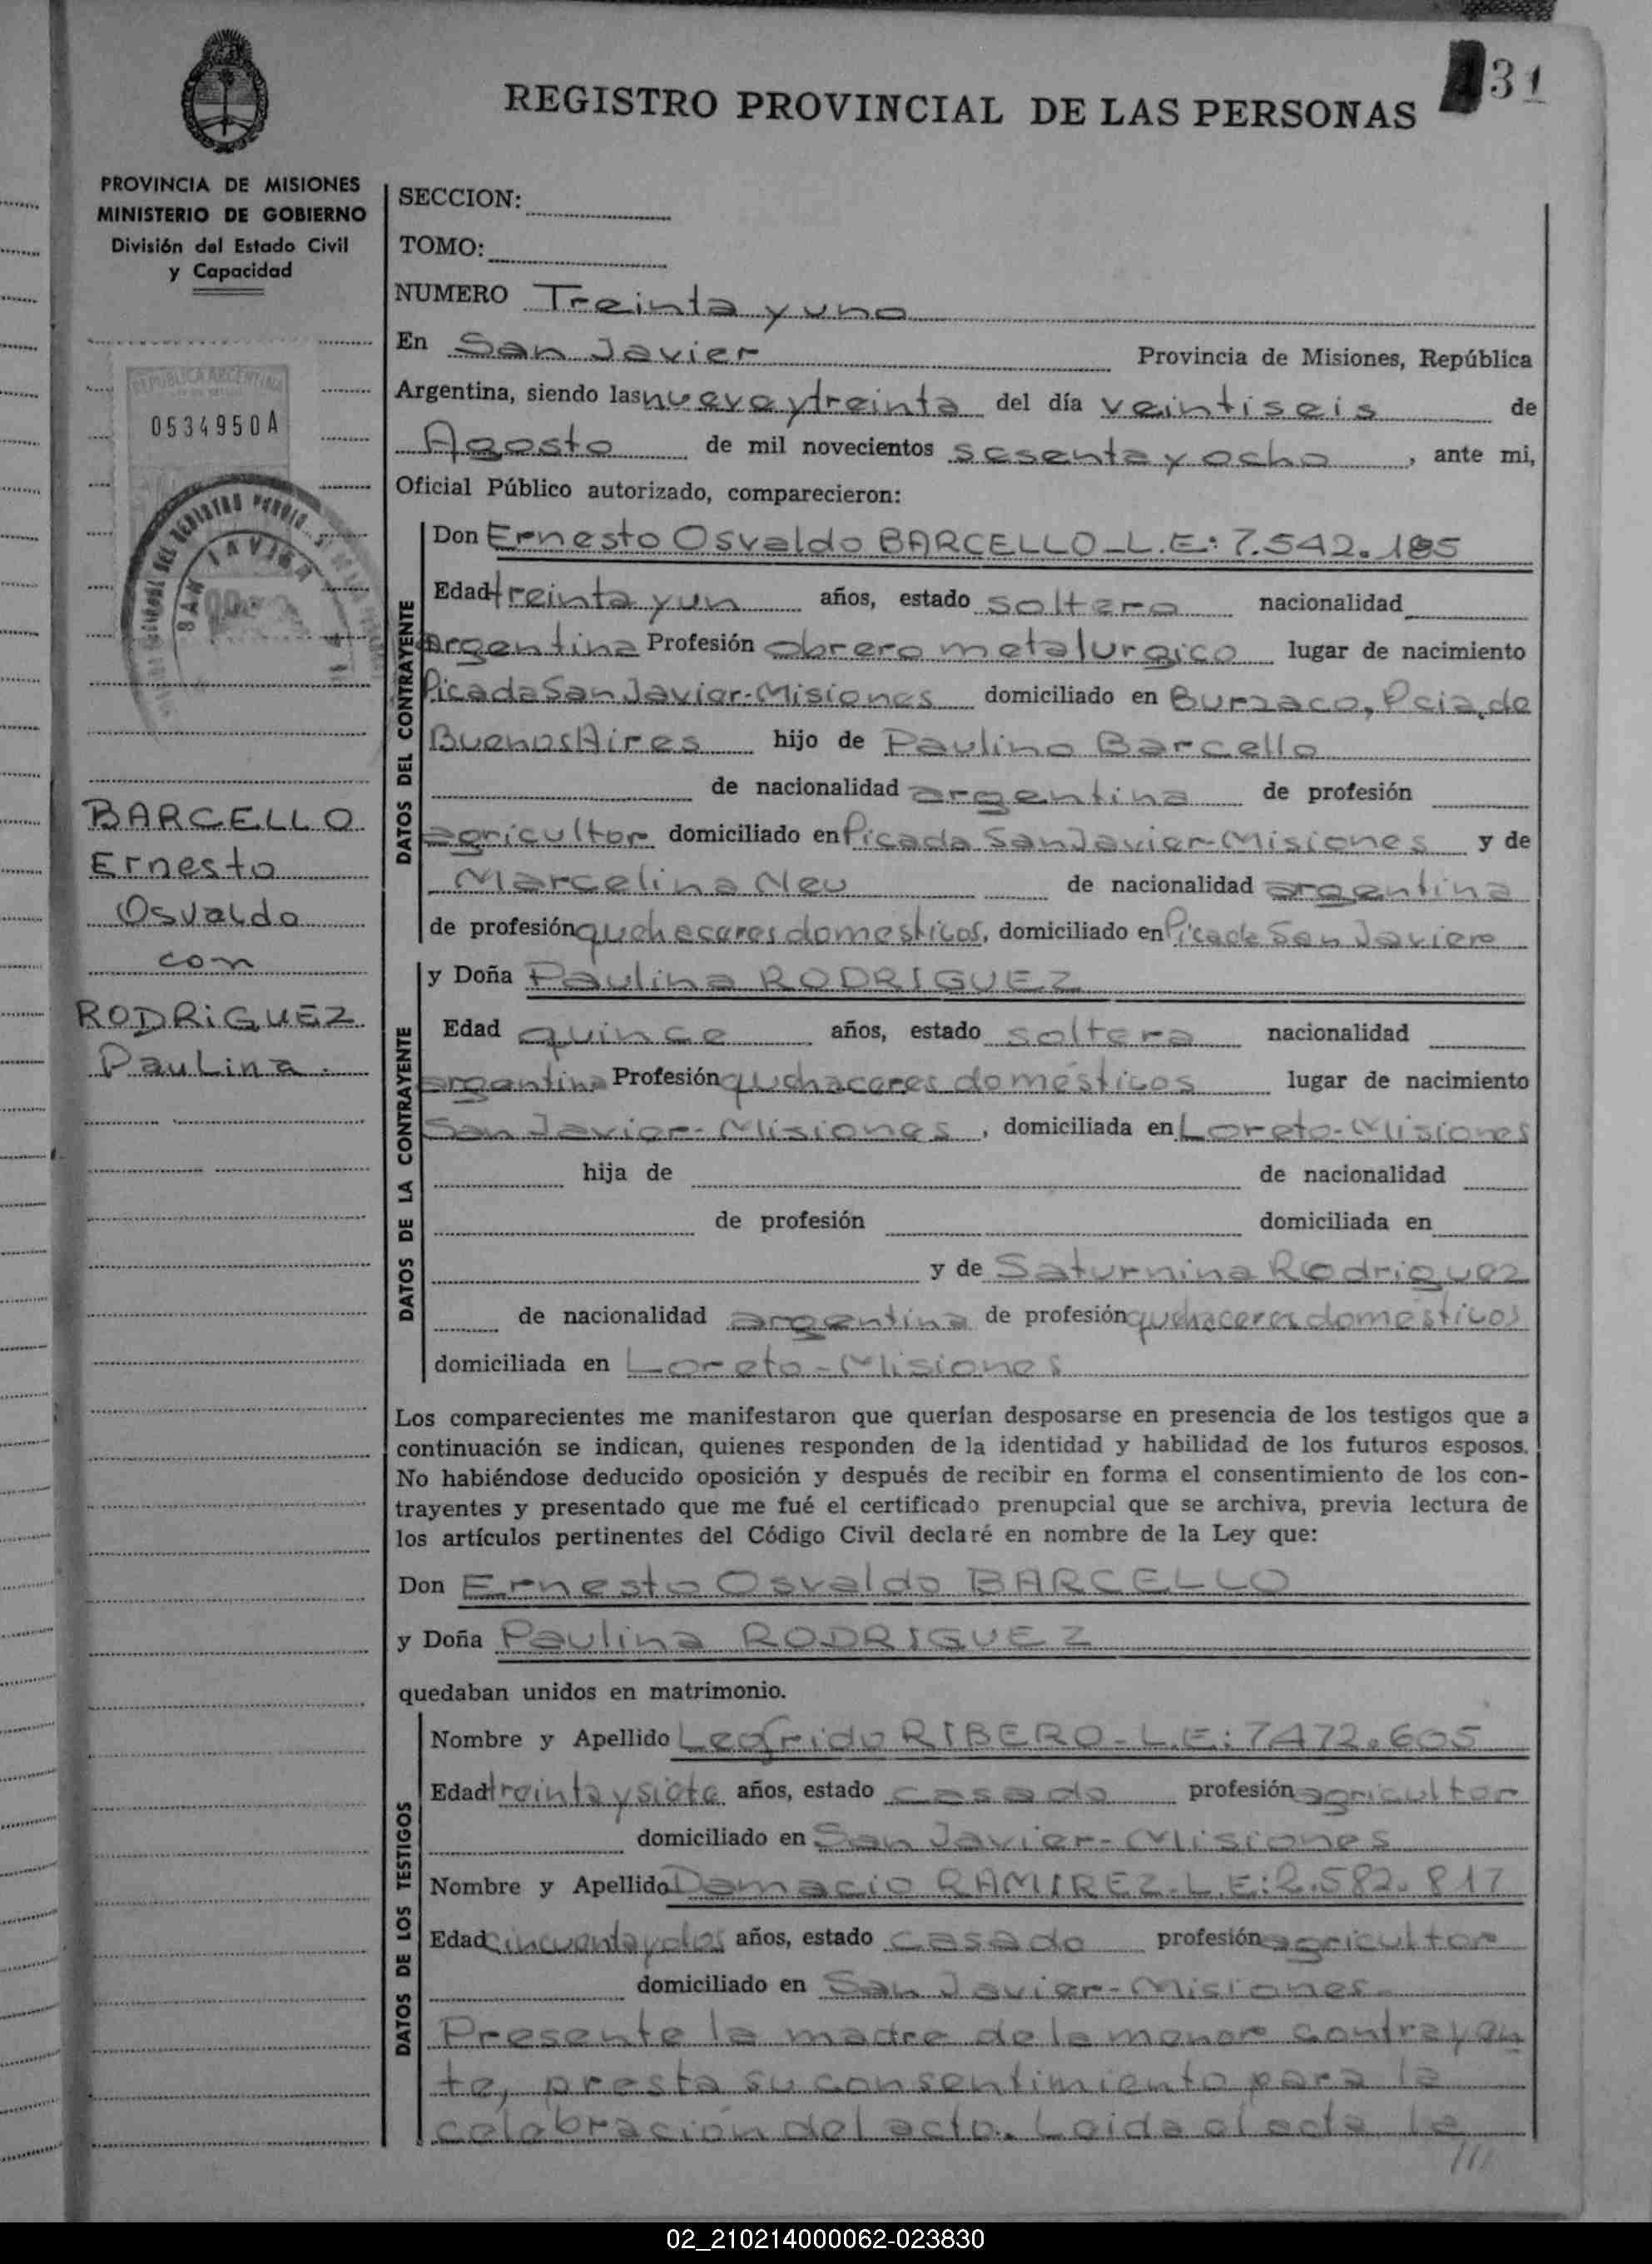 31
REGISTRO PROVINCIAL DE LAS PERSONAS
PROVINCIA DE MISIONES
MINISTERIO DE GOBIERNO
División del Estado Civil
y Capacidad
REPUBLICA ARGENTINA
0534950A
SAN JAVIER
BARCELLO
Ernesto
Osvaldo
con
RODRiGUEZ
Paulina.
SECCION:
TOMO:
NUMERO Treinta y uno
En San Javier Provincia de Misiones, República
Argentina, siendo las nueve y treinta del día veintiseis de
Agosto de mil novecientos sesenta y ocho, ante mi,
Oficial Público autorizado, comparecieron:
DATOS DEL CONTRAYENTE
Don Ernesto Osvaldo BARCELLO_L.E: 7.542.185
Edad treinta y un años, estado soltero nacionalidad
argentina Profesión obrero metalurgico lugar de nacimiento
Picada San Javier-Misiones domiciliado en Burzaco, Pcia. de
Buenos Aires hijo de Paulino Barcello
de nacionalidad argentina de profesión
agricultor domiciliado en Picada San Javier-Misiones y de
Marcelina Neu de nacionalidad argentina
de profesión quehaceres domesticos, domiciliado en Picada San Javiero
DATOS DE LA CONTRAYENTE
y Doña Paulina RODRIGUEZ
Edad quince años, estado soltera nacionalidad
argentina Profesión quehaceres domésticos lugar de nacimiento
San Javier-Misiones, domiciliada en Loreto-Misiones
hija de de nacionalidad
de profesión domiciliada en
y de Saturnina Rodriguez
de nacionalidad argentina de profesión quehaceres domesticos
domiciliada en Loreto-Misiones
Los comparecientes me manifestaron que querían desposarse en presencia de los testigos que a
continuación se indican, quienes responden de la identidad y habilidad de los futuros esposos.
No habiéndose deducido oposición y después de recibir en forma el consentimiento de los con-
trayentes y presentado que me fué el certificado prenupcial que se archiva, previa lectura de
los artículos pertinentes del Código Civil declaré en nombre de la Ley que:
Don Ernesto Osvaldo BARCELLO
y Doña Paulina RODRIGUEZ
quedaban unidos en matrimonio.
DATOS DE LOS TESTIGOS
Nombre y Apellido Leofrido RIBERO-L.E: 7472.605
Edad treinta y siete años, estado casado profesión agricultor
domiciliado en San Javier-Misiones
Nombre y Apellido Damacio RAMIREZ-L.E: 2.582.817
Edad cincuenta y dos años, estado casado profesión agricultor
domiciliado en San Javier-Misiones
Presente la madre de la menor contrayen
te, presta su consentimiento para la
celebración del acto. Leida el acta le
///
02_210214000062-023830